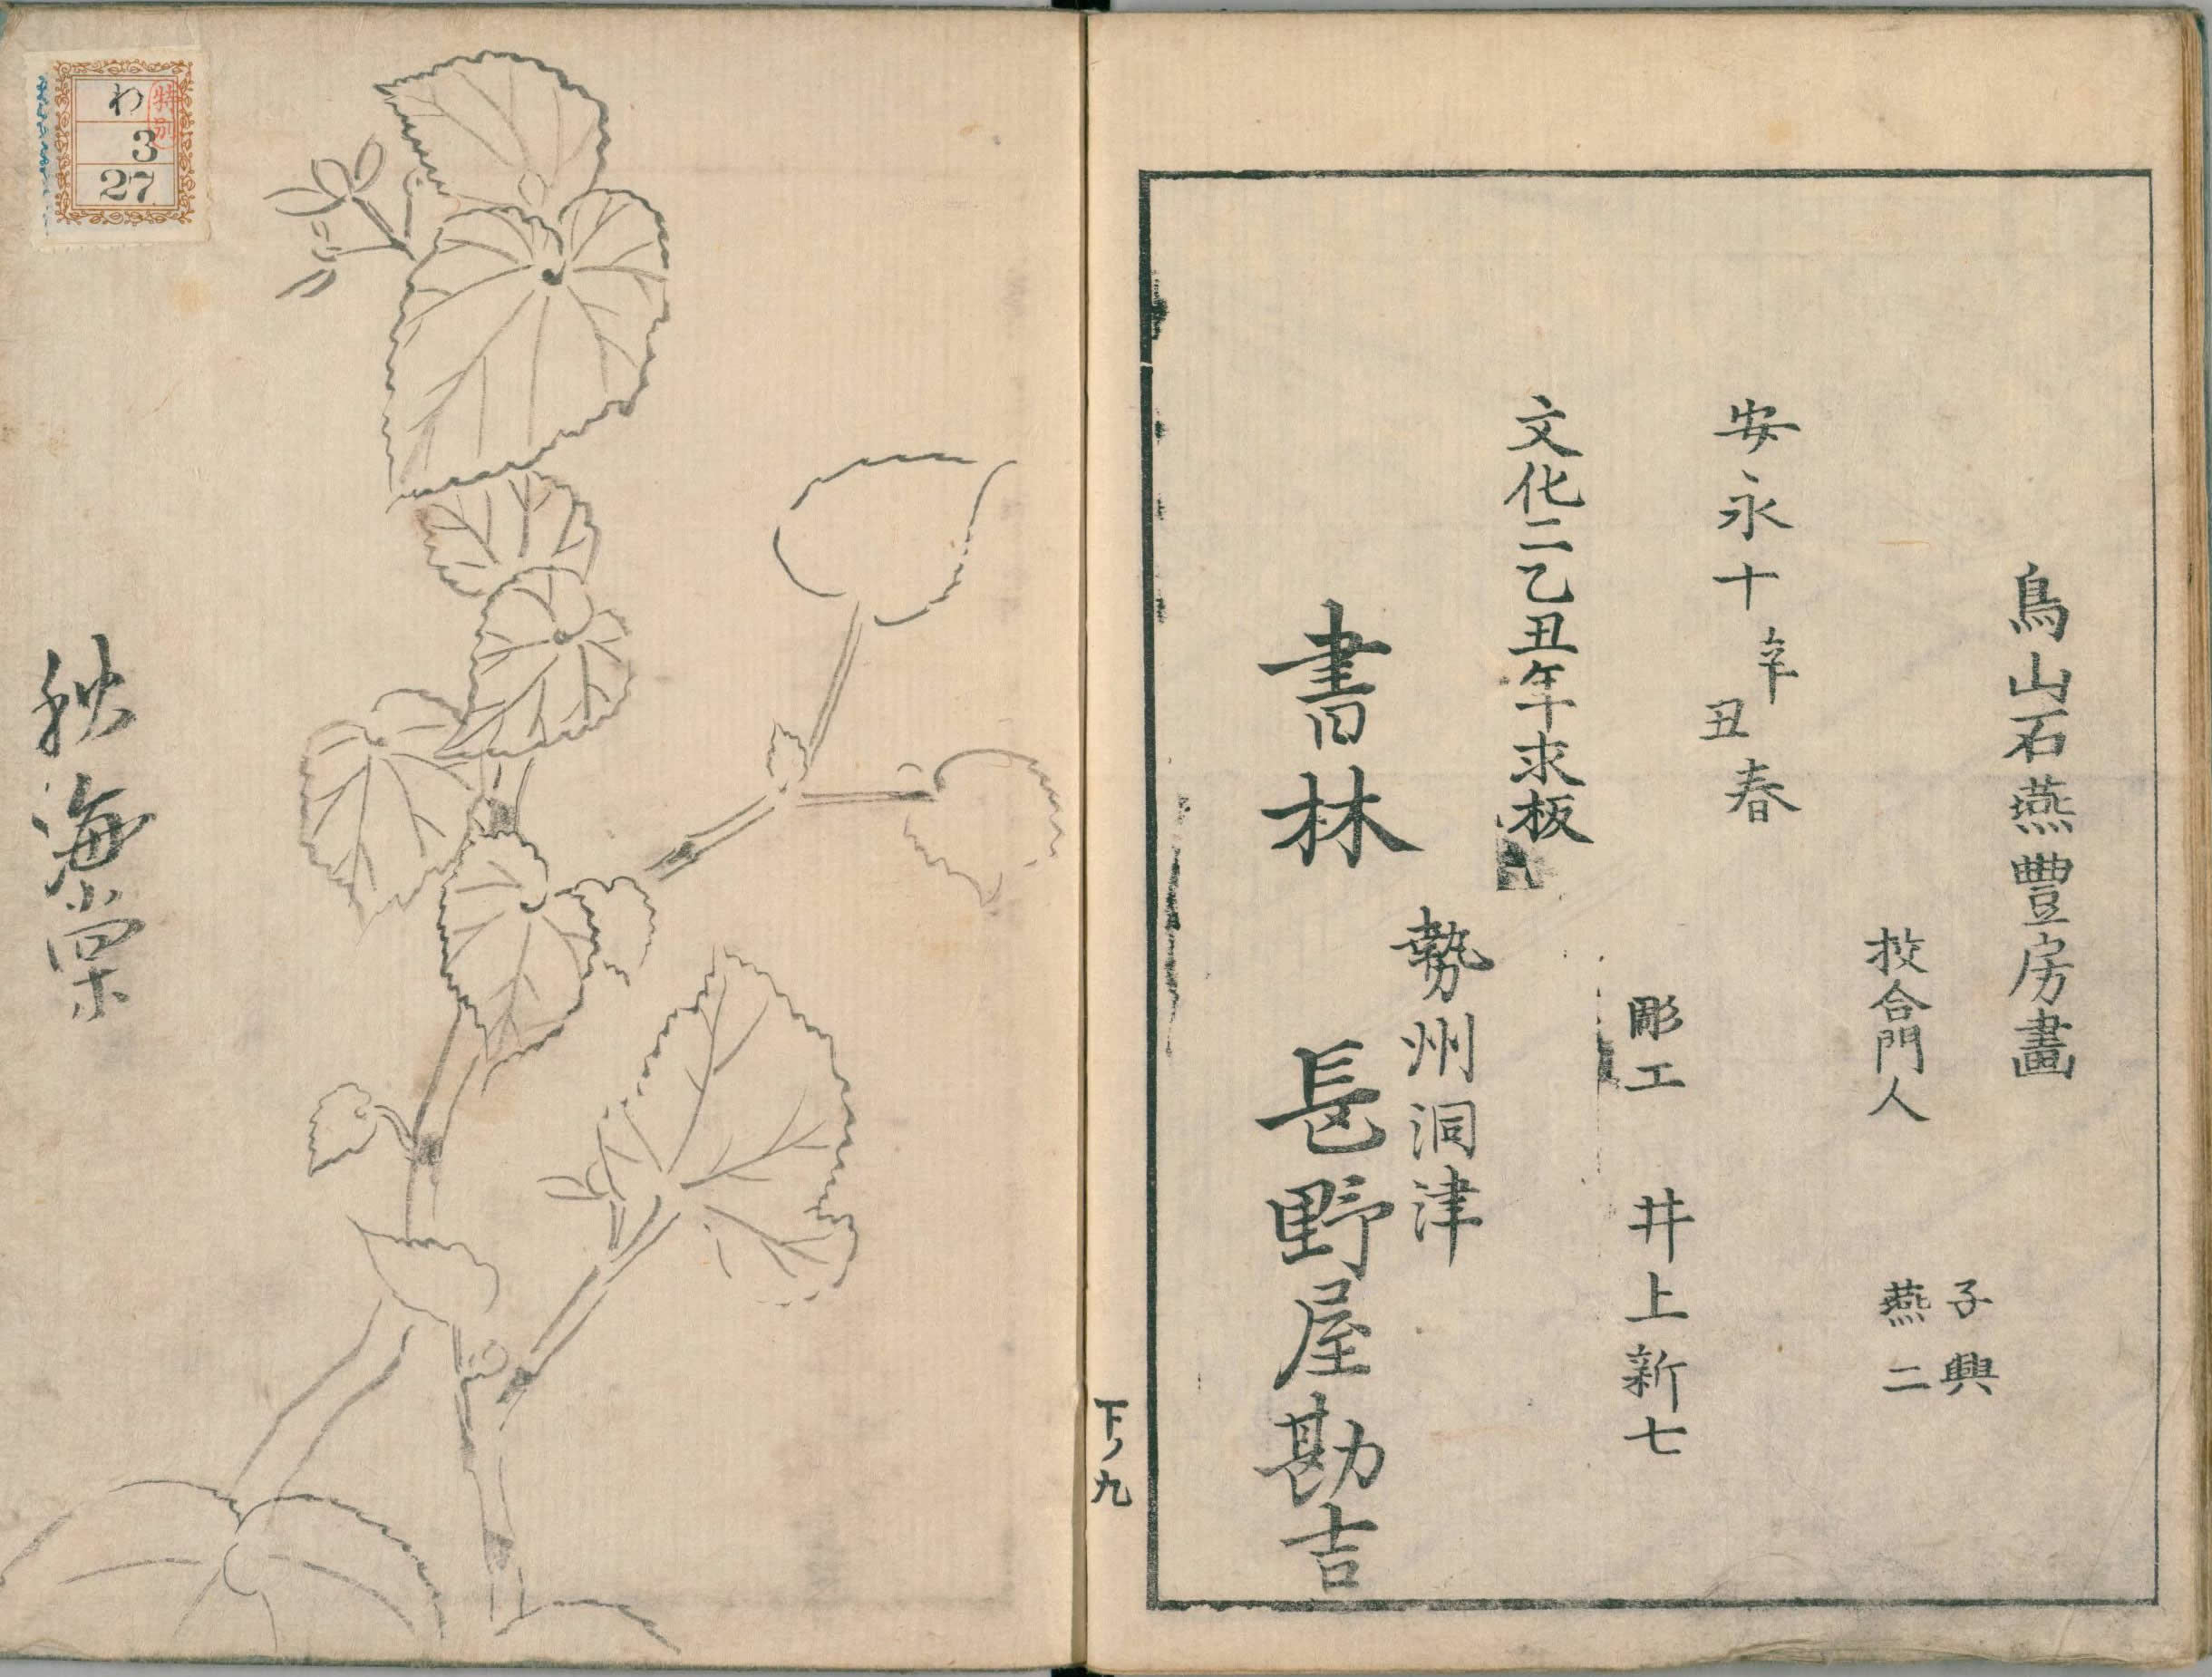 鳥山石燕豊房畫
校合門人
子興
燕二
安永十辛丑春
彫工 井上新七
文化二乙丑年求板
勢州洞津
書林 長野屋勘吉
下ノ九
秋海棠
特別
わ
3
27